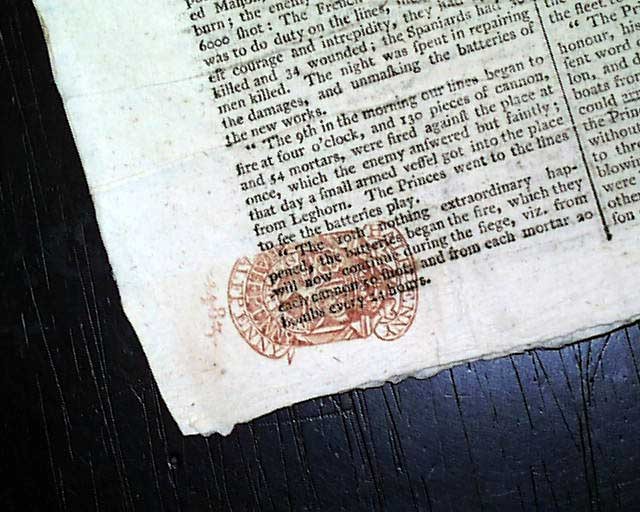 burn; the enemy
6000 ſhot: The French
was to do duty on the lines,
eſt courage and intrepidity, they had
killed and 34 wounded; the Spaniards had
men killed. The night was ſpent in repairing
the damages, and unmaſking the batteries of
the new works.
“ The 9th in the morning our lines began to
fire at four o'clock, and 130 pieces of cannon,
and 54 mortars, were fired againſt the place at
once, which the enemy anſwered but faintly;
that day a ſmall armed veſſel got into the place
from Leghorn. The Princes went to the lines
to ſee the batteries play.
“ The 10th nothing extraordinary hap-
pened, the batteries began the fire, which they
will now continue during the ſiege, viz. from
each cannon 50 ſhots and from each mortar 20
bombs every 24 hours.
the fleet to
“ The P
honour, ha
ſent word
lon, and
boats from
could
the Prin
withou
to th
blow
were
othe
ſon